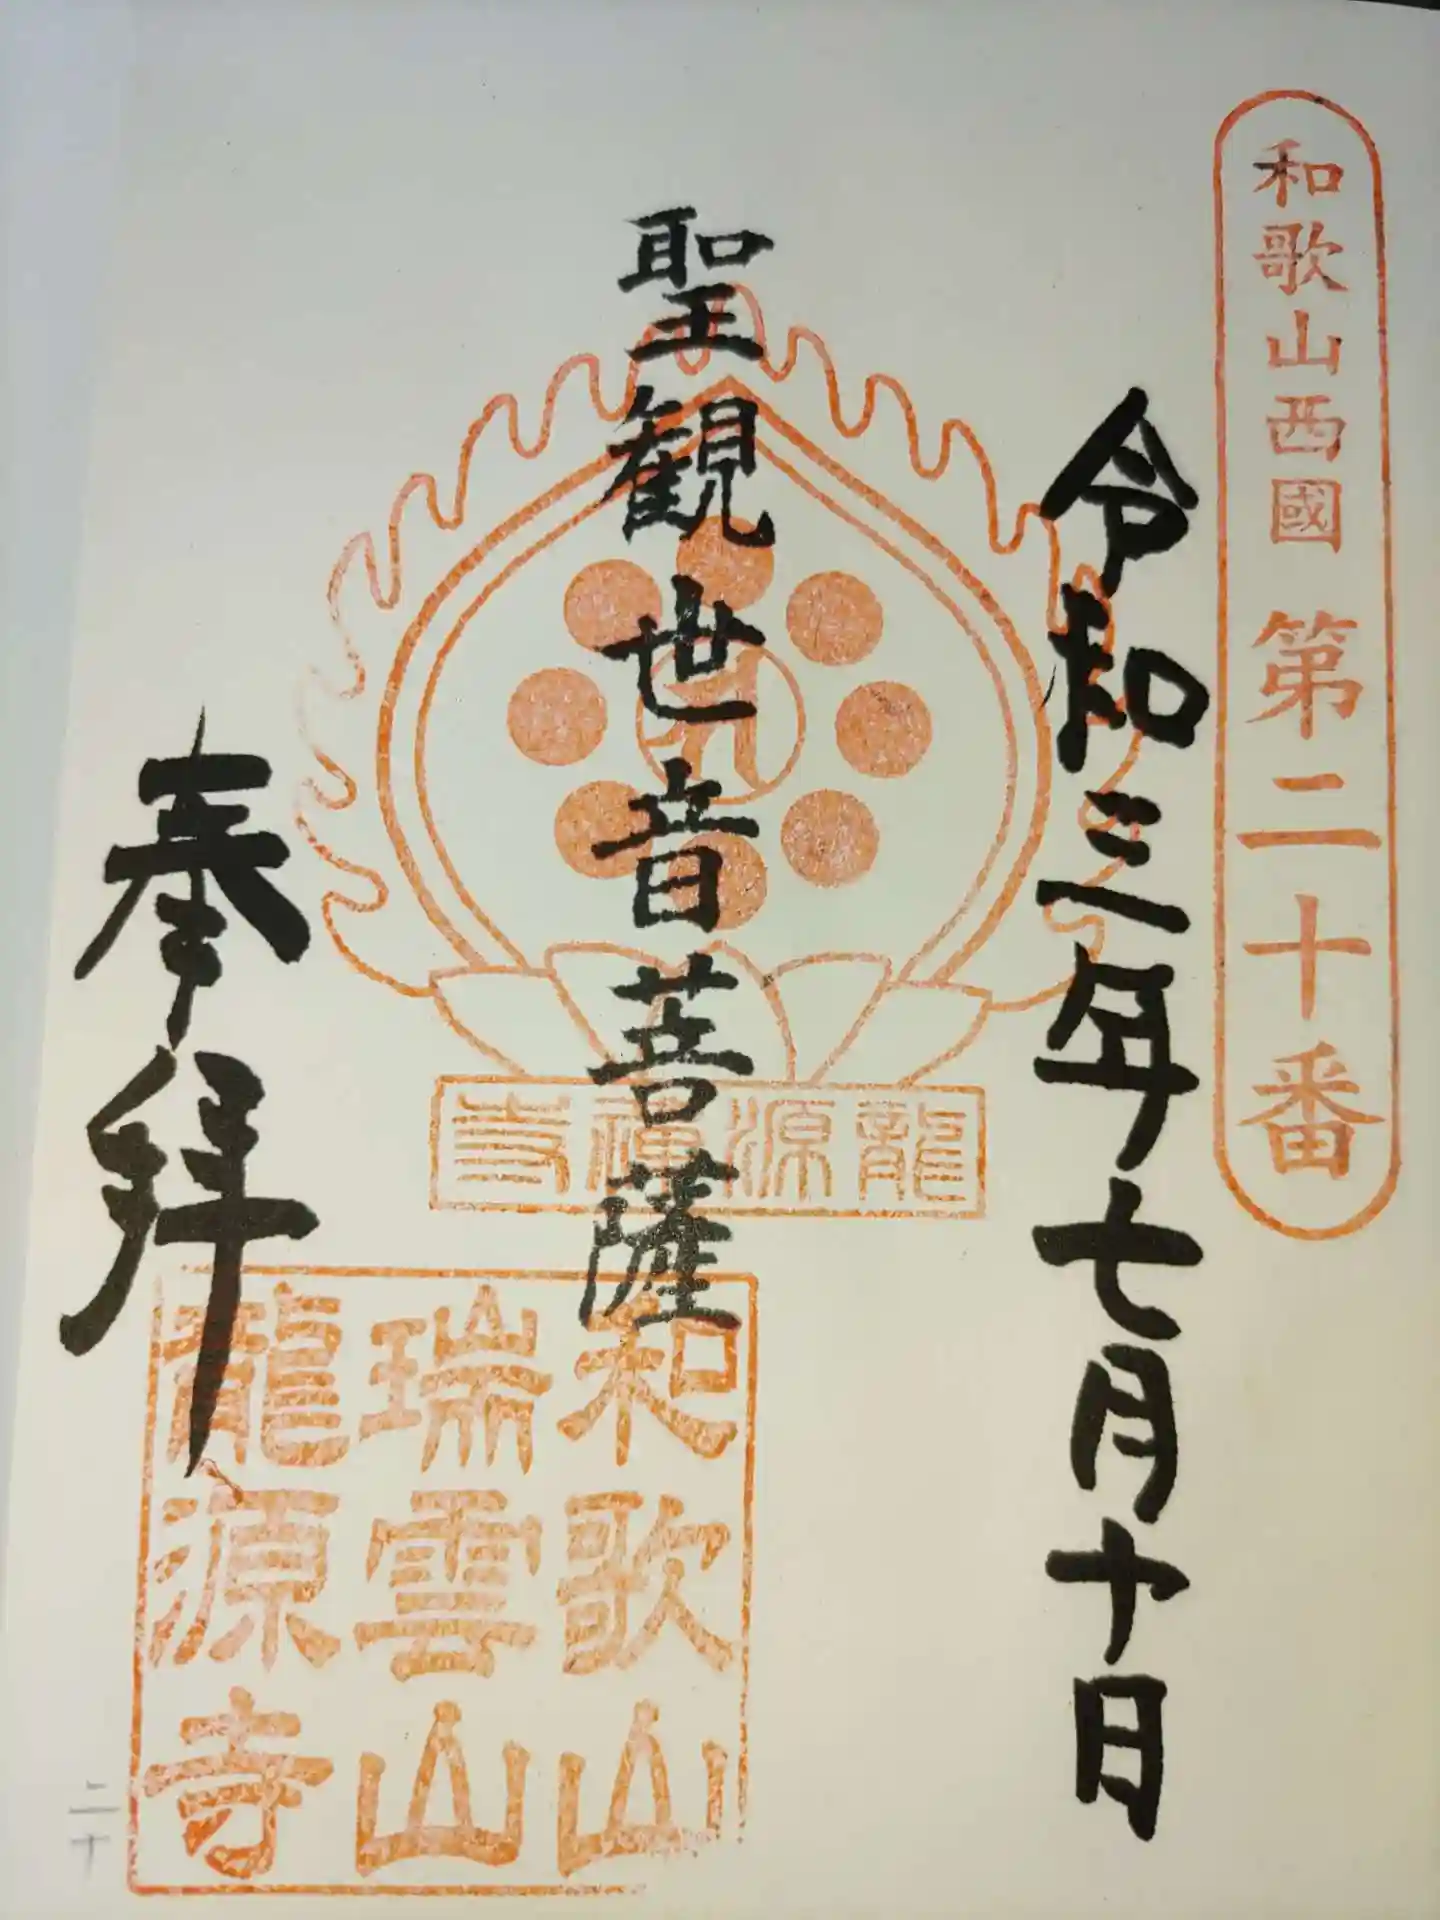 和歌山西國 第二十番
令和三年七月十日
聖観世音菩薩
龍源禅寺
奉拝
和歌山
瑞雲山
龍源寺
二十